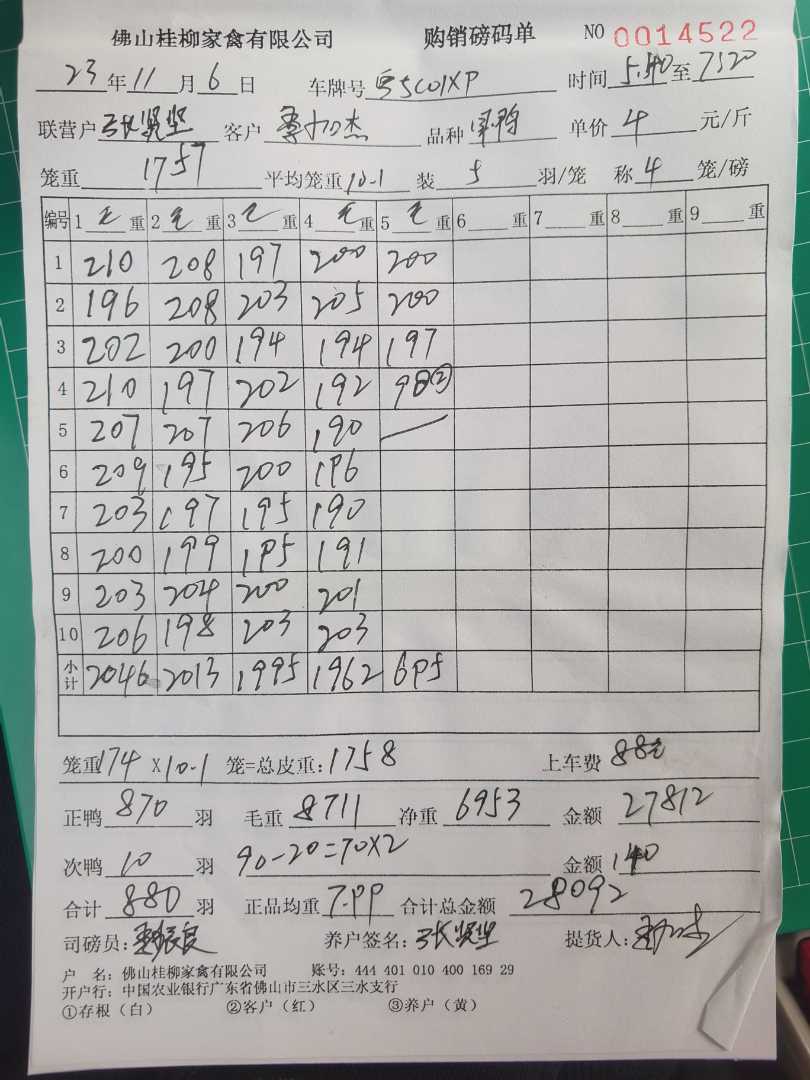 佛山桂柳家禽有限公司 购销磅码单 NO 0014522
23年11月6日 车牌号 粤5C01XP 时间 5.40至7520
联营户 张贤坚 客户 李加杰 品种 单价 4 元/斤
笼重 1757 平均笼重 10.1 装 5 羽/笼 称 4 笼/磅
编号 1 毛 重 2 毛 重 3 毛 重 4 毛 重 5 毛 重 6 重 7 重 8 重 9 重
1 210 208 197 200 200
2 196 208 203 205 200
3 202 200 194 194 197
4 210 197 202 192 98②
5 207 207 206 190 —
6 209 195 200 196
7 203 197 195 190
8 200 199 195 191
9 203 204 200 201
10 206 198 203 203
小计 2046 2013 1995 1962 695
笼重174 X10.1 笼=总皮重:1758 上车费 88元
正鸭 870 羽 毛重 8711 净重 6953 金额 27812
次鸭 10 羽 90-20=70X2 金额 140
合计 880 羽 正品均重 7.99 合计总金额 28092
司磅员: 养户签名:张贤坚 提货人:
户 名:佛山桂柳家禽有限公司 账号:444 401 010 400 169 29
开户行:中国农业银行广东省佛山市三水区三水支行
①存根(白) ②客户(红) ③养户(黄)